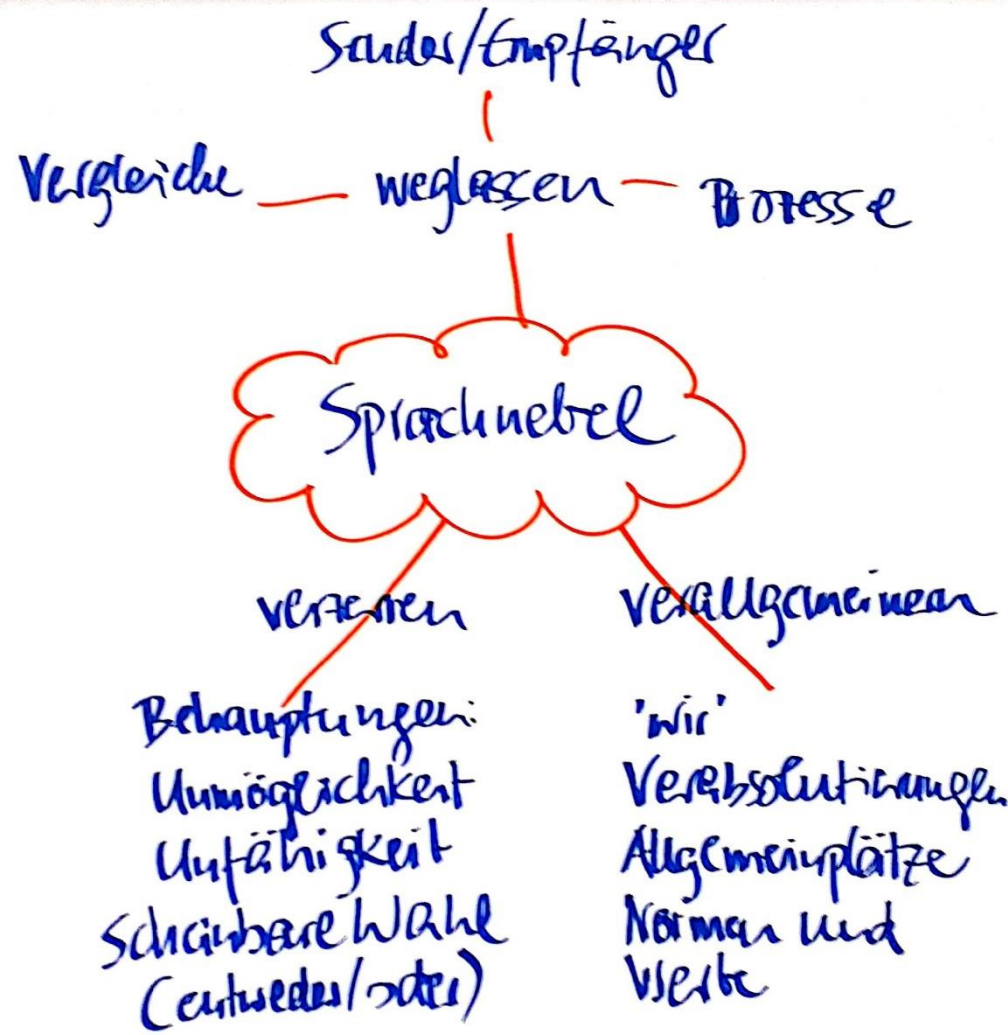 Sender/Empfänger
Vergleiche weglassen Prozesse
Sprachnebel
verzerren
verallgemeinern
Behauptungen:
Unmöglichkeit
Unfähigkeit
Scheinbare Wahl
(entweder/oder)
'wir'
Verabsolutierungen
Allgemeinplätze
Normen und
Werte